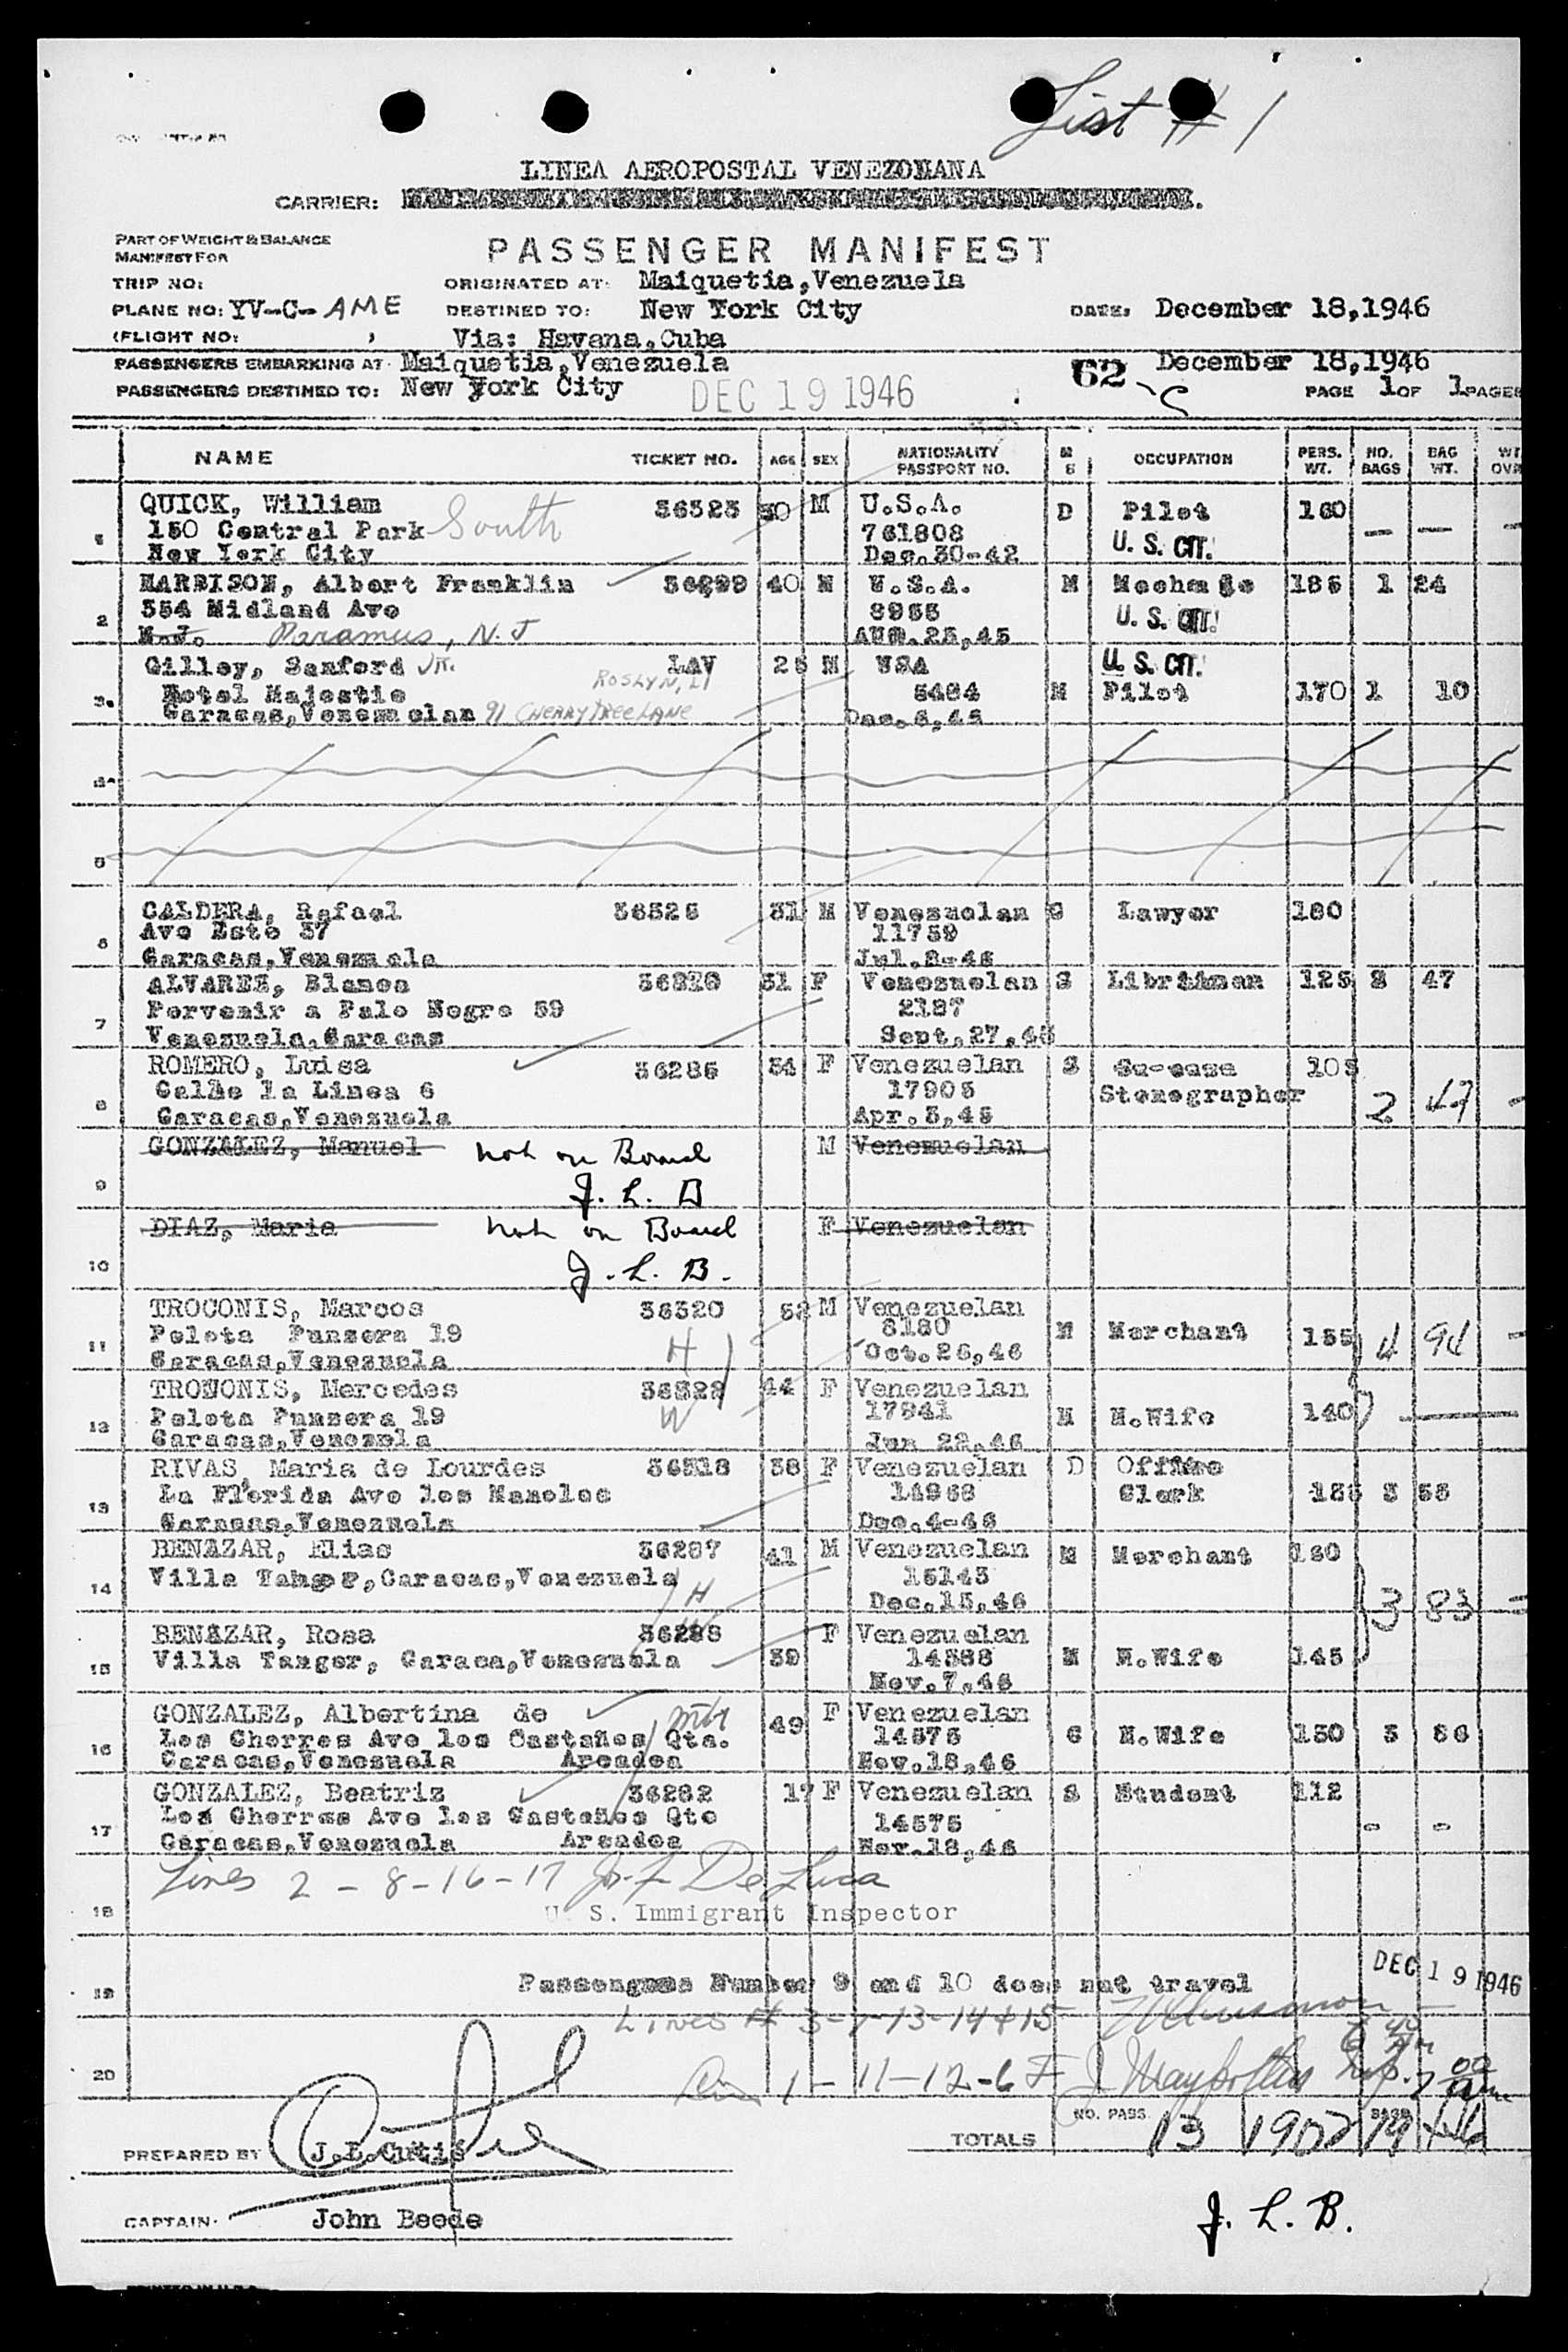 List # 1
LINEA AEROPOSTAL VENEZOMANA
CARRIER:
PART OF WEIGHT & BALANCE
MANIFEST FOR
PASSENGER MANIFEST
TRIP NO: ORIGINATED AT: Maiquetia,Venezuela
PLANE NO: YV-C- AME DESTINED TO: New York City DATE: December 18,1946
(FLIGHT NO: ) Via: Havana,Cuba
PASSENGERS EMBARKING AT Maiquetia,Venezuela 62 December 18,1946
PASSENGERS DESTINED TO: New York City DEC 19 1946 PAGE 1 OF 1 PAGES
NAME TICKET NO. AGE SEX NATIONALITY PASSPORT NO. M S OCCUPATION PERS. WT. NO. BAGS BAG WT. WT OVR
1 QUICK, William 36323 30 M U.S.A. D Pilot 160 — —
150 Central Park South 761808 U. S. CIT.
New York City Dec.30-42
2 HARBISON, Albert Franklin 36299 40 M U.S.A. M 185 1 24
554 Midland Ave 8955 U. S. CIT.
N.J. Paramus, N.J Aug.25,45
3. Gilley, Sanford Jr. LAV 25 M USA U. S. CIT.
Hotel Majestic ROSLYN, LI 5484 M Pilot 170 1 10
Caracas,Venezuelan 91 CHERRYTREE LANE Dec.6,45
5
6 CALDERA, Rafael 36326 31 M Venezuelan Lawyer 180
Ave Este 37 11759
Caracas,Venezuela
7 ALVAREZ, Blanca 31 F Venezuelan S 125 47
Porvenir a Palo Negro 59 2187
Venezuela,Caracas Sept.27,45
8 ROMERO, Luisa 36286 34 F Venezuelan S 105
Calle la Linea 6 17905 Stenographer 2 47
Caracas,Venezuela Apr.3,45
9 GONZALEZ, Manuel not on Board M Venezuelan
J. L. B
10 DIAZ, Maria not on Board F Venezuelan
J. L. B.
11 TROCONIS, Marcos 36320 52 M Venezuelan M Merchant 155 4 94
Pelota Punzera 19 H 8180
Caracas,Venezuela Oct.26,46
12 TROCONIS, Mercedes 36322 44 F Venezuelan M H.Wife 140
Pelota Punzera 19 W 17941
Caracas,Venezuela Jun 22,46
13 RIVAS, Maria de Lourdes 36318 38 F Venezuelan D Office
La Florida Ave los Mangles 14968 Clerk 135 3 55
Caracas,Venezuela Dec.4-46
14 BENAZAR, Elias 36287 41 M Venezuelan M Merchant
Villa Tanger,Caracas,Venezuela H 15145 3 83
Dec.13,46
15 BENAZAR, Rosa 36288 39 F Venezuelan M H.Wife 145
Villa Tanger, Caraca,Venezuela 14388
Nov.7,46
16 GONZALEZ, Albertina de 49 F Venezuelan H.Wife 150 3 86
Los Chorros Ave los Castaños Qta. 14575
Caracas,Venezuela Arcadea Nov.18,46
17 GONZALEZ, Beatriz 36282 17 F Venezuelan S Student 112
Los Chorros Ave los Castaños Qta 14576 - -
Caracas,Venezuela Arcadea Nov.18,46
Lines 2 - 8-16-17 De Luca
18 U. S. Immigrant Inspector
19 Passengers Number 9 and 10 does not travel DEC 19 1946
Lines # 3-7-13-14+15
20 1 - 11-12-6
TOTALS NO. PASS. 13
PREPARED BY J.L.Cutis
CAPTAIN: John Beede
J. L. B.